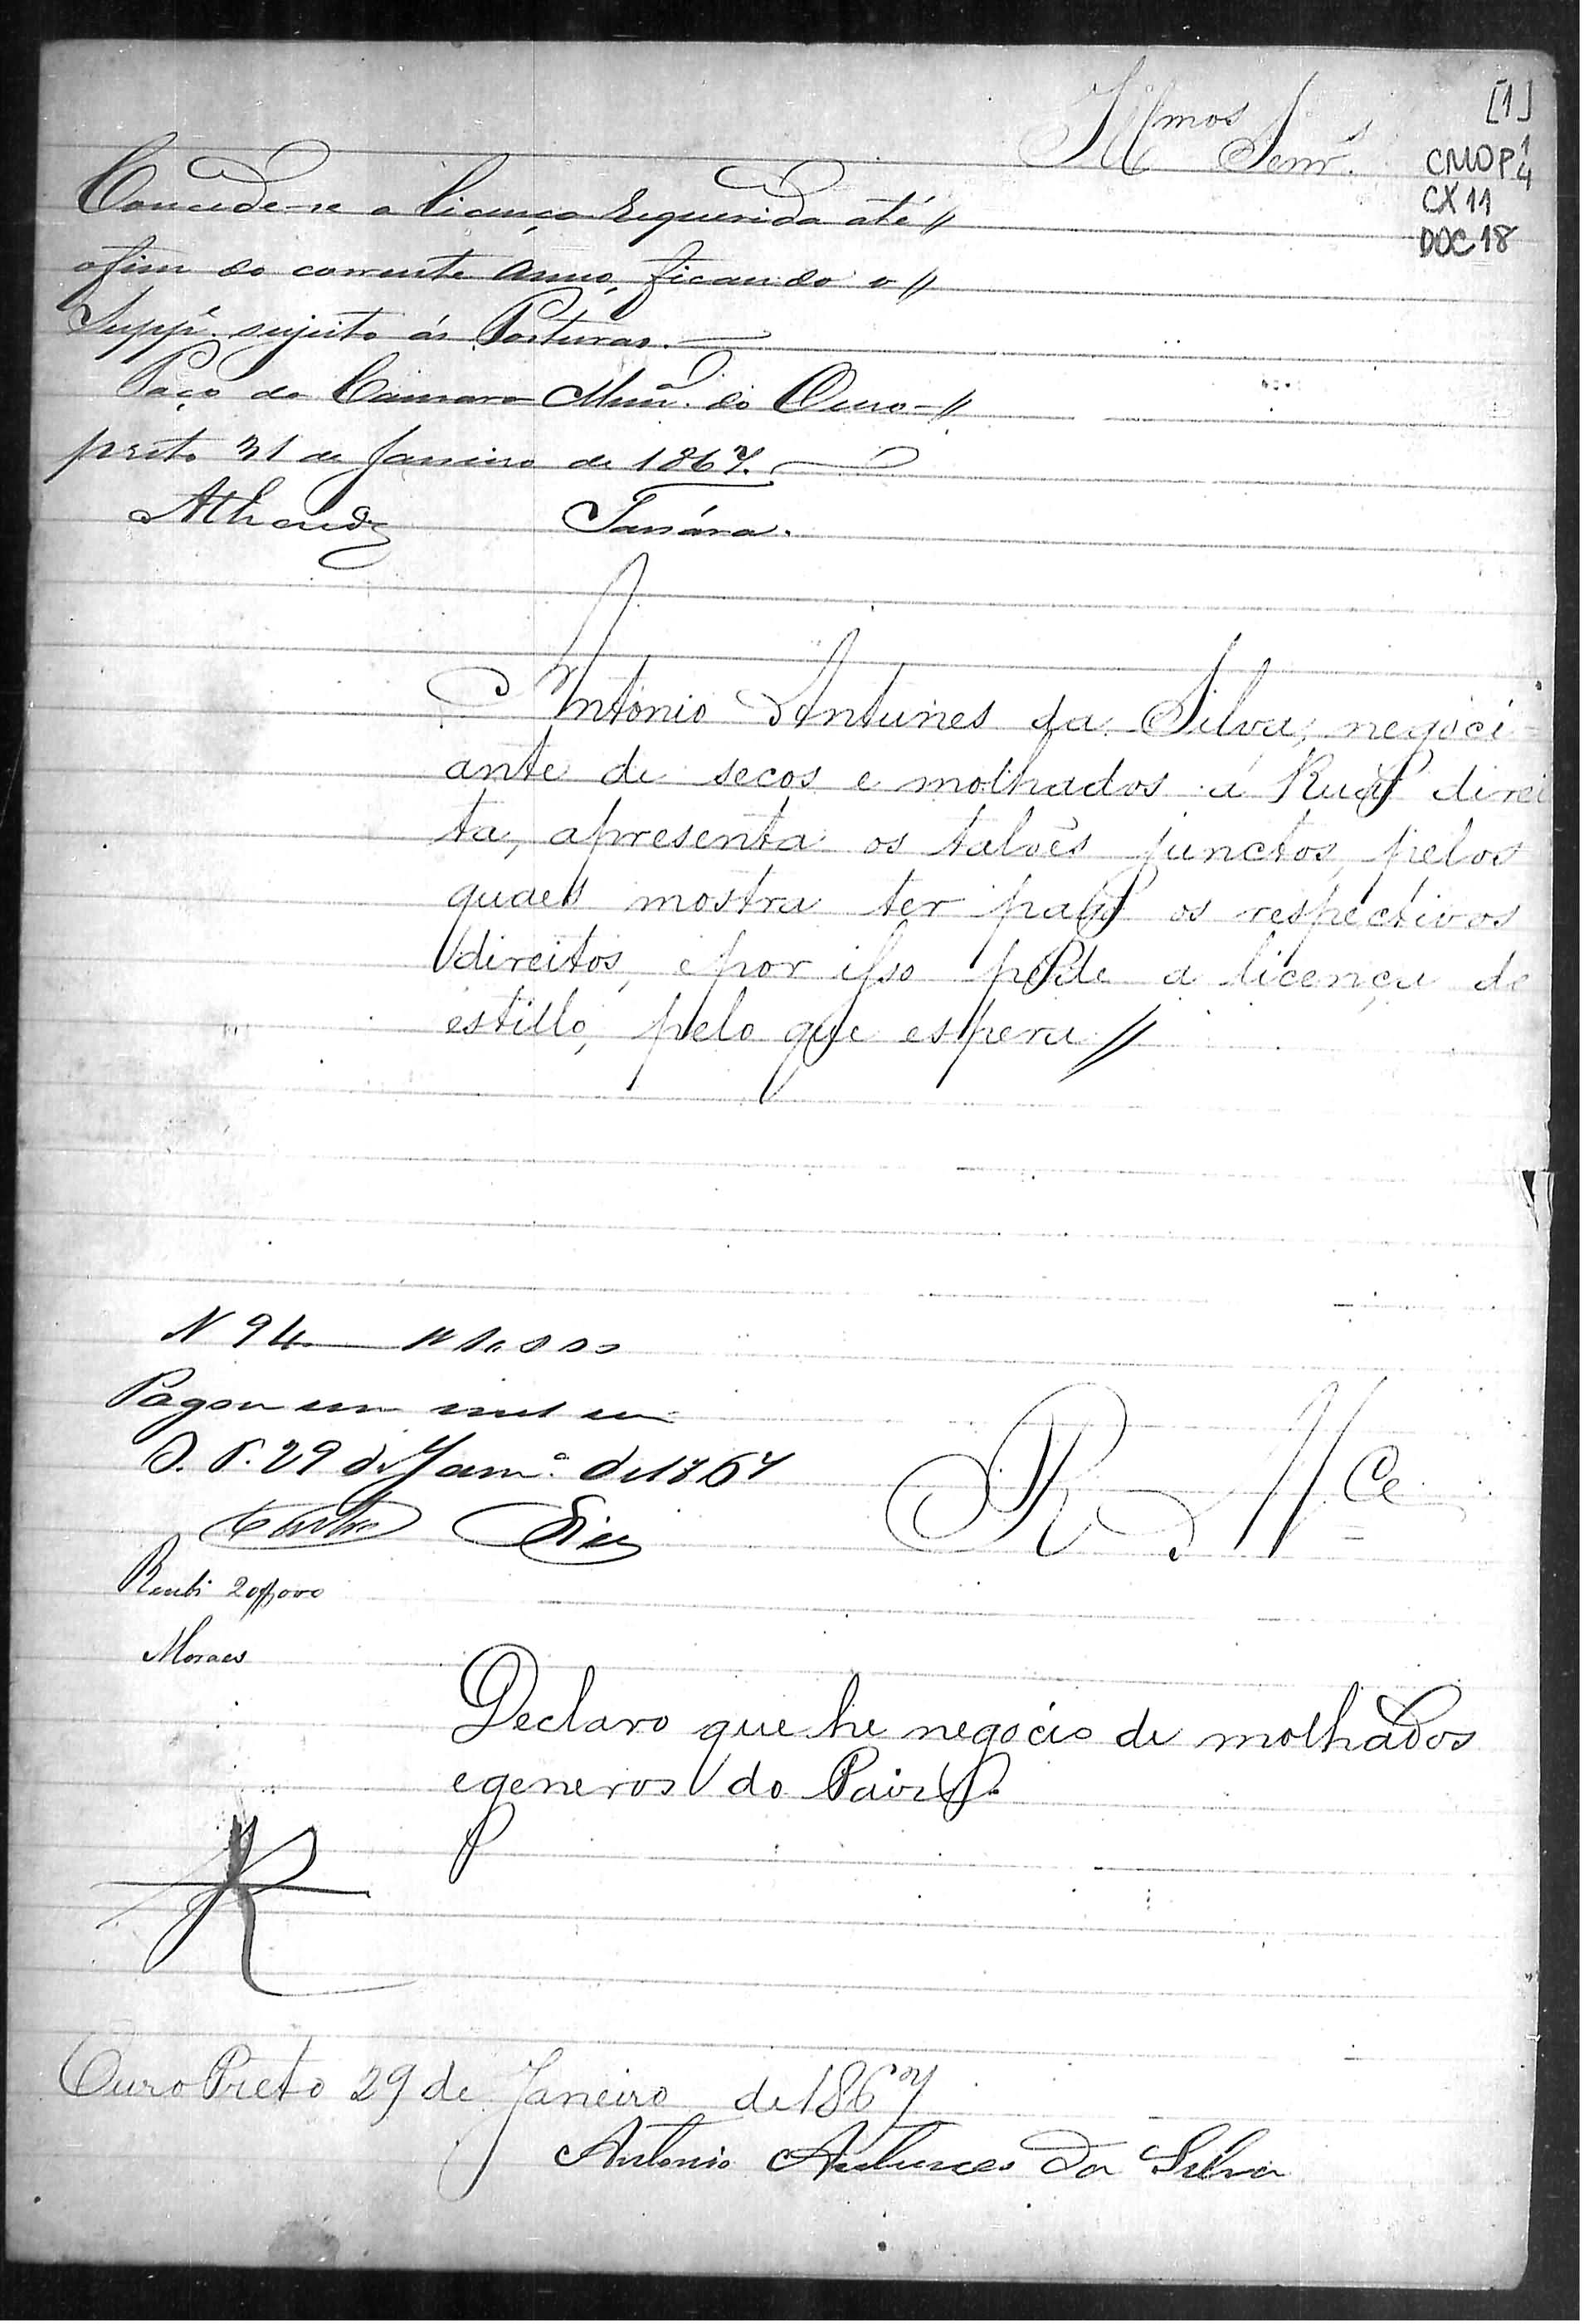 [1]
CMOP 1/4
CX 11
DOC 18
Ill.mos Senr.s
Concede-se a licença requerida até //
o fim do corrente anno, ficando o //
Supp.e sujeito ás Posturas.
Paço da Camara Mun.al do Ouro- //
preto 31 de Janeiro de 1867.
Antonio Antunes da Silva, negoci-
ante de secos e molhados á Rua direi
ta, apresenta os talões junctos, pelos
quaes mostra ter pago os respectivos
direitos, epor isso pede a licença de
estillo, pelo que espera //
N 94 1.000
Pagou um mil reis
O. P. 29 de Jan.o de 1867
R. M.ce
Recebi 20$000
Moraes
Declaro que he negocio de molhados
egeneros do Paiz.
Ouro Preto 29 de Janeiro de 1867
Antonio Antunes da Silva